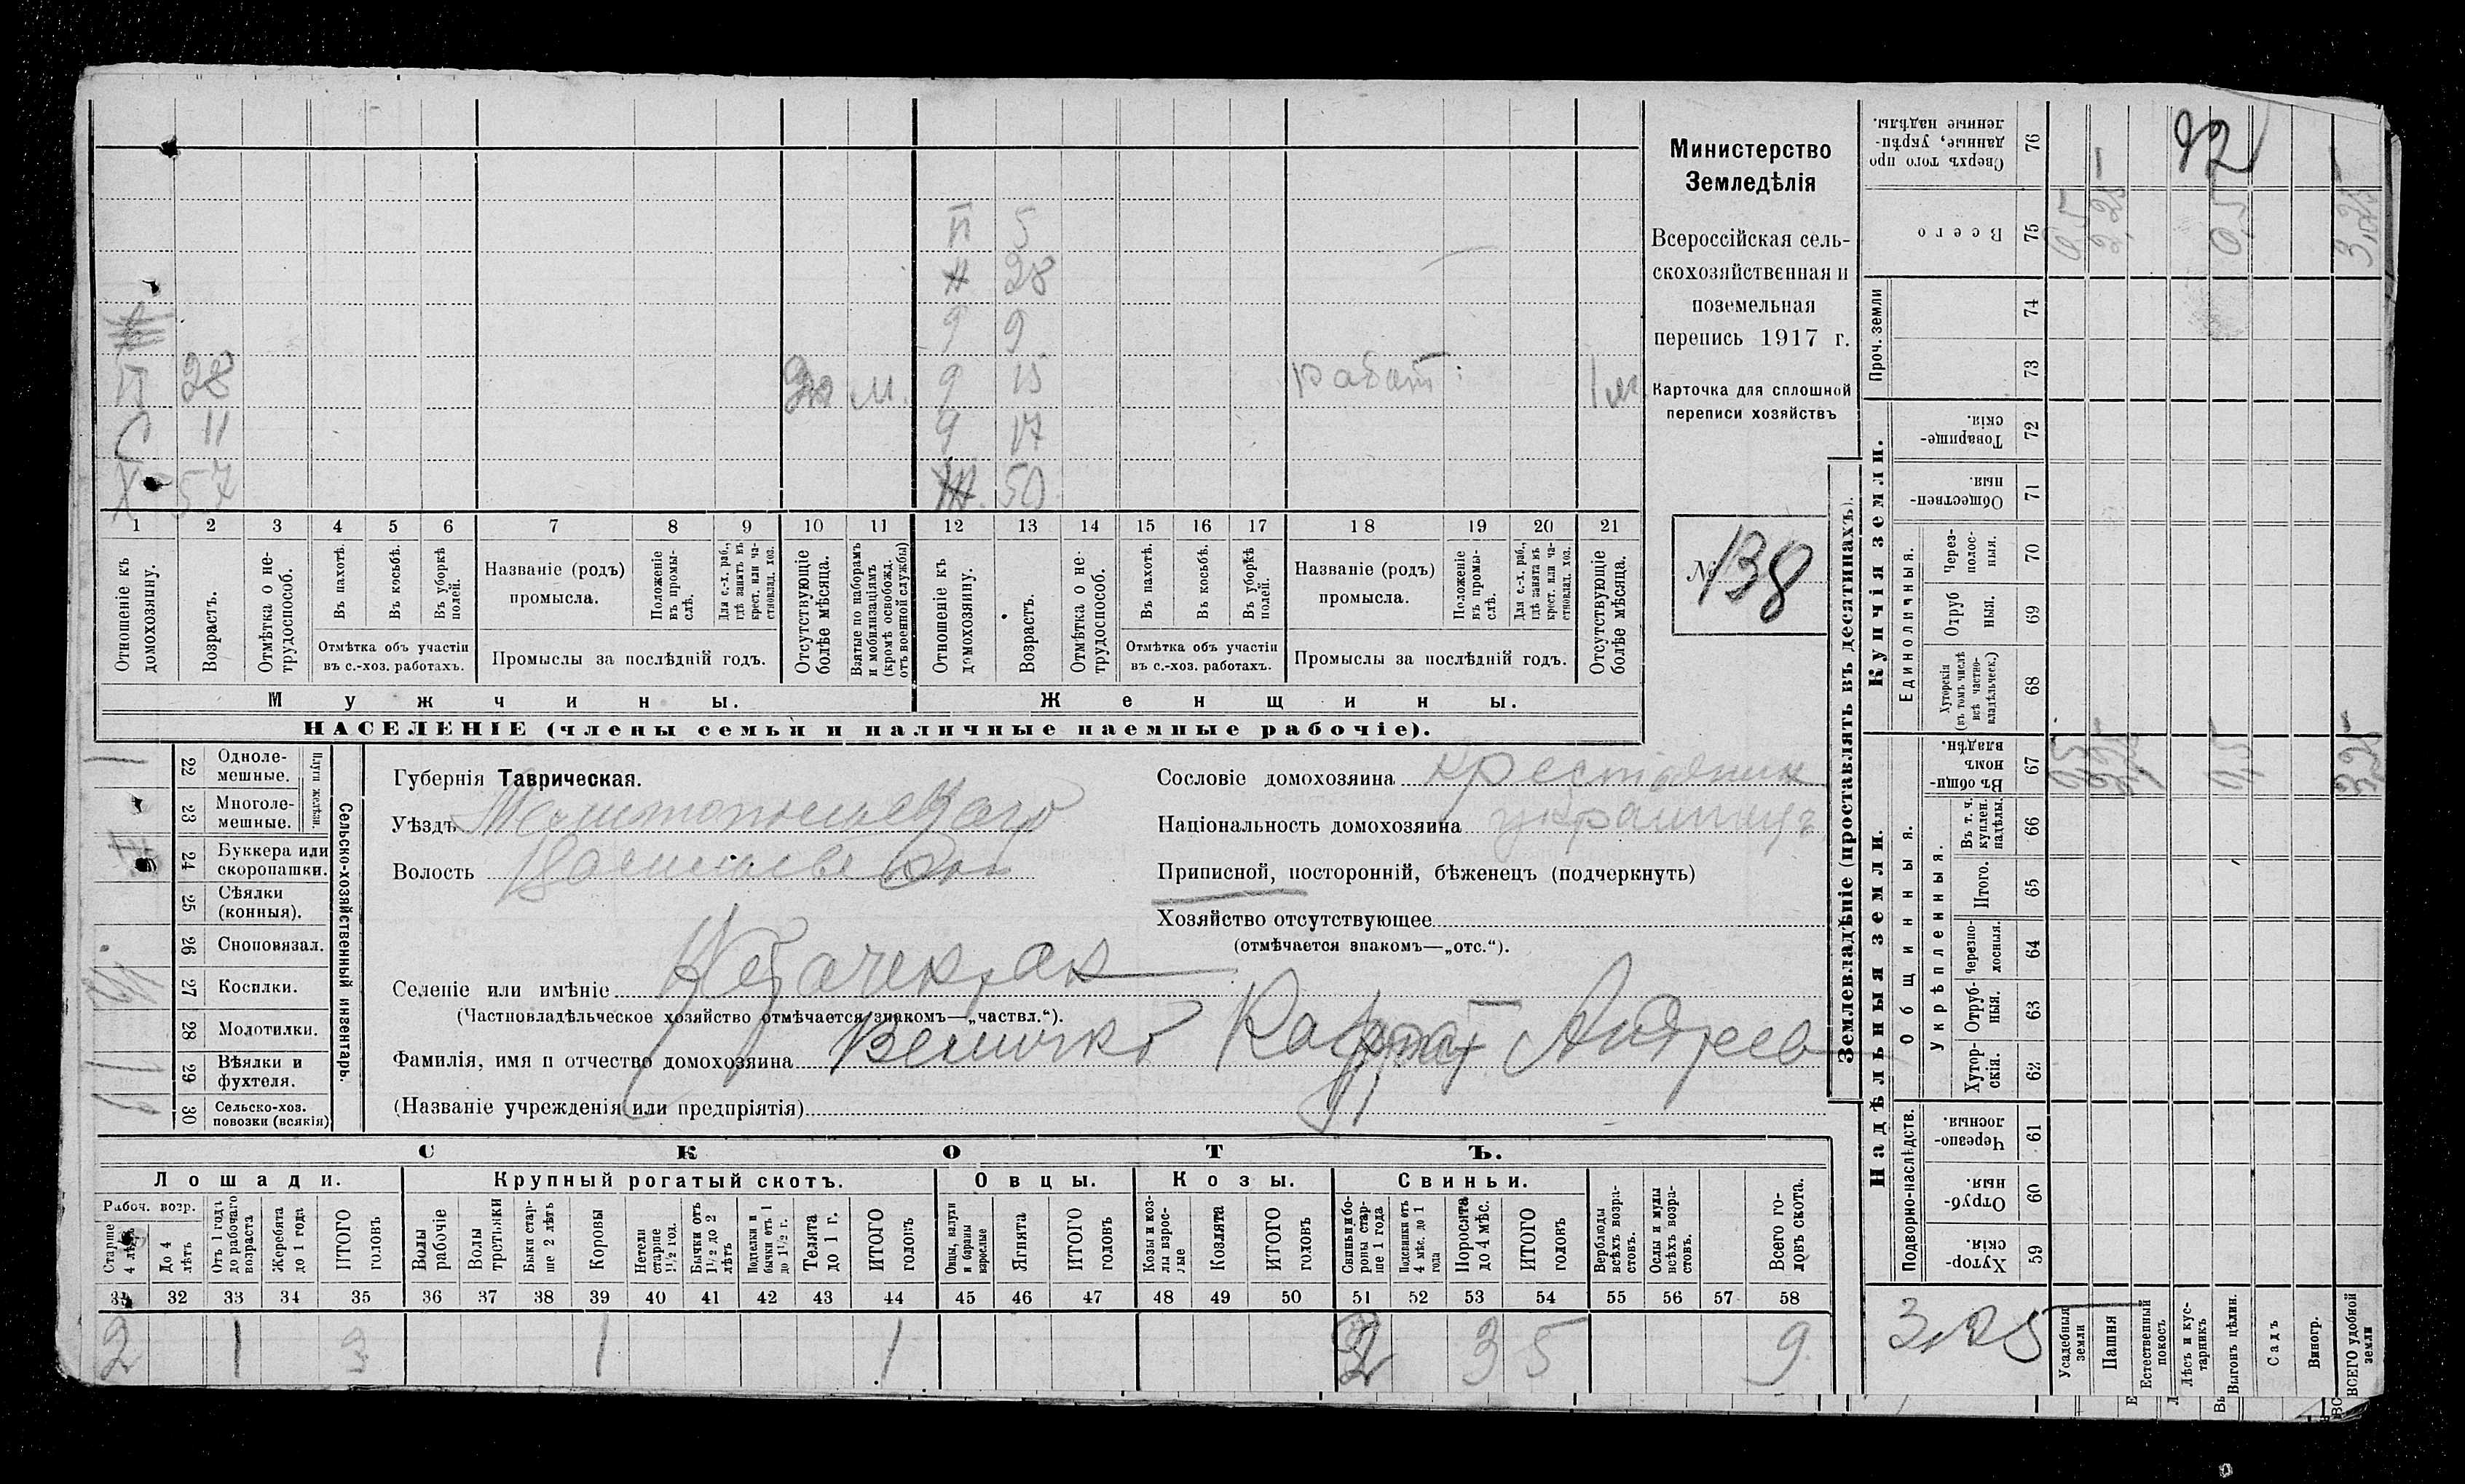 Министерство
Земледѣлія
Всероссійская сель-
скохозяйственная и
поземельная
перепись 1917 г.
Карточка для сплошной
переписи хозяйствъ
№ 138
П 5
28
9 9
П 28 м. 9 15 работ. 1 м.
С 11 9 17
Х 57 50
1 2 3 4 5 6 7 8 9 10 11 12 13 14 15 16 17 18 19 20 21
Отношеніе къ домохозяину.
Возрастъ.
Отмѣтка о не-трудоспособ.
Въ пахотѣ.
Въ косьбѣ.
Въ уборкѣ полей.
Отмѣтка объ участіи въ с.-хоз. работахъ.
Названіе (родъ) промысла.
Положеніе въ промы-слѣ.
Для с.-х. раб., гдѣ занятъ въ крест. или ча-стновлад. хоз.
Промыслы за послѣдній годъ.
Отсутствующіе болѣе мѣсяца.
Взятые по наборамъ и мобилизаціямъ (кромѣ освобожд. отъ военной службы)
Отношеніе къ домохозяину.
Возрастъ.
Отмѣтка о не-трудоспособ.
Въ пахотѣ.
Въ косьбѣ.
Въ уборкѣ полей.
Отмѣтка объ участіи въ с.-хоз. работахъ.
Названіе (родъ) промысла.
Положеніе въ промы-слѣ.
Для с.-х. раб., гдѣ занята въ крест. или ча-стновлад. хоз.
Промыслы за послѣдній годъ.
Отсутствующіе болѣе мѣсяца.
Мужчины. Женщины.
НАСЕЛЕНІЕ (члены семьи и наличные наемные рабочіе).
Сельско-хозяйственный инвентарь.
Плуги желѣзн.
22 Одноле-мешные. 1
23 Многоле-мешные.
24 Буккера или скоропашки.
25 Сѣялки (конныя).
26 Сноповязал.
27 Косилки.
28 Молотилки.
29 Вѣялки и фухтеля. 1
30 Сельско-хоз. повозки (всякія) 1
Губернія Таврическая.
Уѣздъ
Волость
Селеніе или имѣніе
(Частновладѣльческое хозяйство отмѣчается знакомъ—„частвл.“).
Фамилія, имя и отчество домохозяина Величко Андреев
(Названіе учрежденія или предпріятія)
Сословіе домохозяина крестьянин
Національность домохозяина украинецъ
Приписной, посторонній, бѣженецъ (подчеркнуть)
Хозяйство отсутствующее
(отмѣчается знакомъ—„отс.“).
СКОТЪ.
Лошади. Крупный рогатый скотъ. Овцы. Козы. Свиньи.
Рабоч. возр.
Старше 4 лѣтъ
До 4 лѣтъ
Отъ 1 года до рабочаго возраста
Жеребята до 1 года
ИТОГО головъ
Волы рабочіе
Волы третьяки
Быки стар-ше 2 лѣтъ
Коровы
Нетели старше 1½ год.
Бычки отъ 1½ до 2 лѣтъ
Подтелки и бычки отъ 1 до 1½ г.
Телята до 1 г.
ИТОГО головъ
Овцы, валухи и бараны взрослые
Ягнята
ИТОГО головъ
Козы и коз-лы взрос-лые
Козлята
ИТОГО головъ
Свиньи бо-ровы стар-ше 1 года
Подсвинки отъ 4 мѣс. до 1 года
Поросята до 4 мѣс.
ИТОГО головъ
Верблюды всѣхъ возра-стовъ.
Ослы и мулы всѣхъ возра-стовъ.
Всего го-ловъ скота.
31 32 33 34 35 36 37 38 39 40 41 42 43 44 45 46 47 48 49 50 51 52 53 54 55 56 57 58
2 1 3 1 1 2 3 5 9
Землевладѣніе (проставлять въ десятинахъ).
Надѣльныя земли. Купчія земли.
Подворно-наслѣдств.
Общинныя.
Укрѣпленныя.
Единоличныя.
Проч. земли
Сверхъ того про данные, укрѣп-ленные надѣлы. 76
Всего 75
74
73
Товарище-скія. 72
Обществен-ныя. 71
Через-полос-ныя. 70
Отруб ныя. 69
Хуторскія (въ томъ числѣ всѣ частно-владѣльческ.) 68
Въ общи-номъ владѣн. 67
Въ т. ч. куплен. надѣлы. 66
Итого. 65
Черезпо-лосныя. 64
Отруб-ныя. 63
Хутор-скія. 62
Черезпо-лосныя. 61
Отруб-ныя. 60
Хутор-скія. 59
92
0,5 2,25 0,5 3,25
0,5 2,25 0,5 3,25
3,25
Усадебныя земли
Пашня
Естественный покосъ
Лѣсъ и кус-тарникъ
Выгонъ цѣлин.
Садъ
Виногр.
ВСЕГО удобной земли